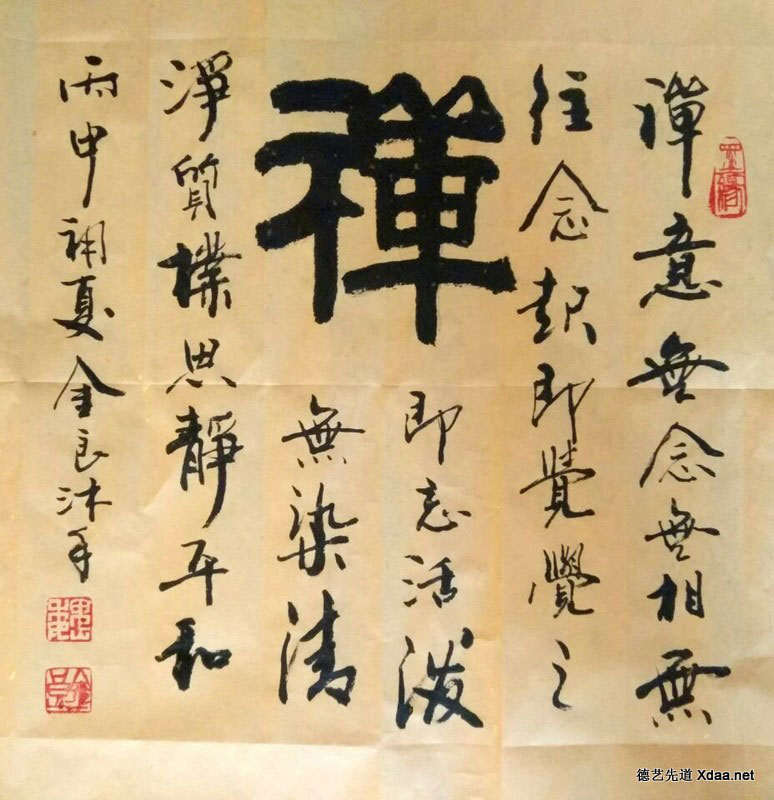 禪意無念無相無
住念起即覺覺之
禪
即忘活潑
無染清
淨質樸思靜平和
丙申初夏金良沐手
德艺先道 Xdaa.net